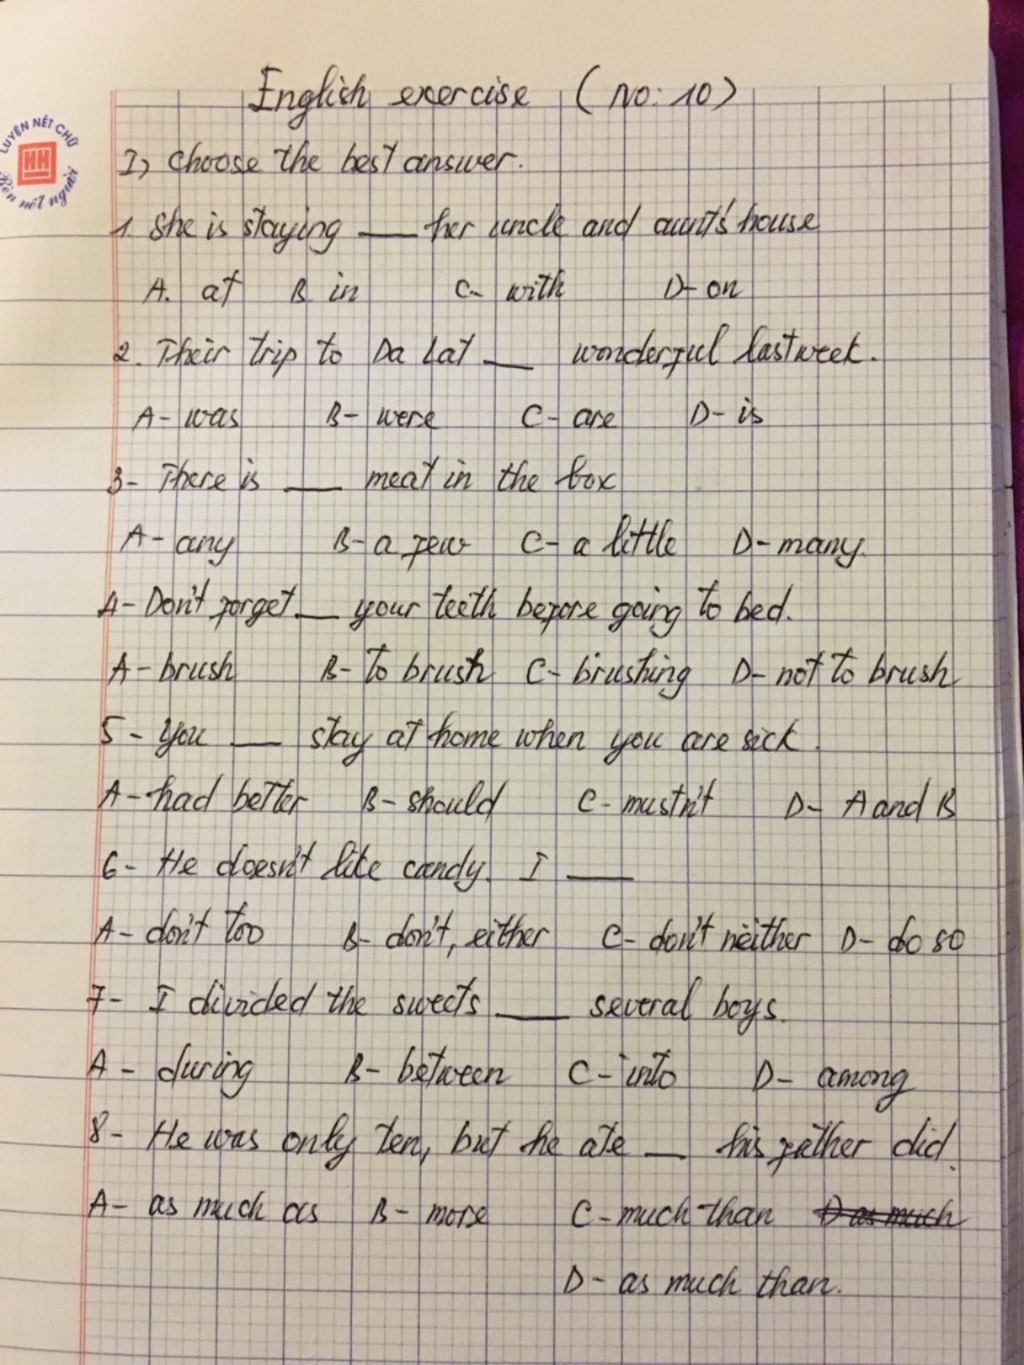 LUYỆN NÉT CHỮ
HH
Rèn nết người
English exercise (No: 10)
I, Choose the best answer.
1. She is staying ___ her uncle and aunt's house
A. at B in C- with D- on
2. Their trip to Da Lat ___ wonderful last week.
A- was B- were C- are D- is
3- There is ___ meat in the box
A- any B- a few C- a little D- many.
4- Don't forget ___ your teeth before going to bed.
A- brush B- to brush C- brushing D- not to brush
5- You ___ stay at home when you are sick.
A- had better B- should C- mustn't D- A and B
6- He doesn't like candy. I ___
A- don't too B- don't, either C- don't neither D- do so
7- I divided the sweets ___ several boys.
A- during B- between C- into D- among
8- He was only ten, but he ate ___ his father did.
A- as much as B- more C- much than D as much
D- as much than.